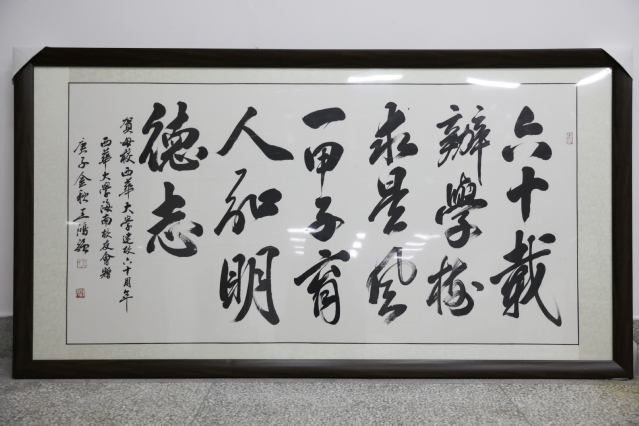 六十載
辦學樹
求是風
一甲子育
人弘明
德志
賀母校西華大學建校六十周年
西華大學海南校友會贈
庚子金秋王鴻